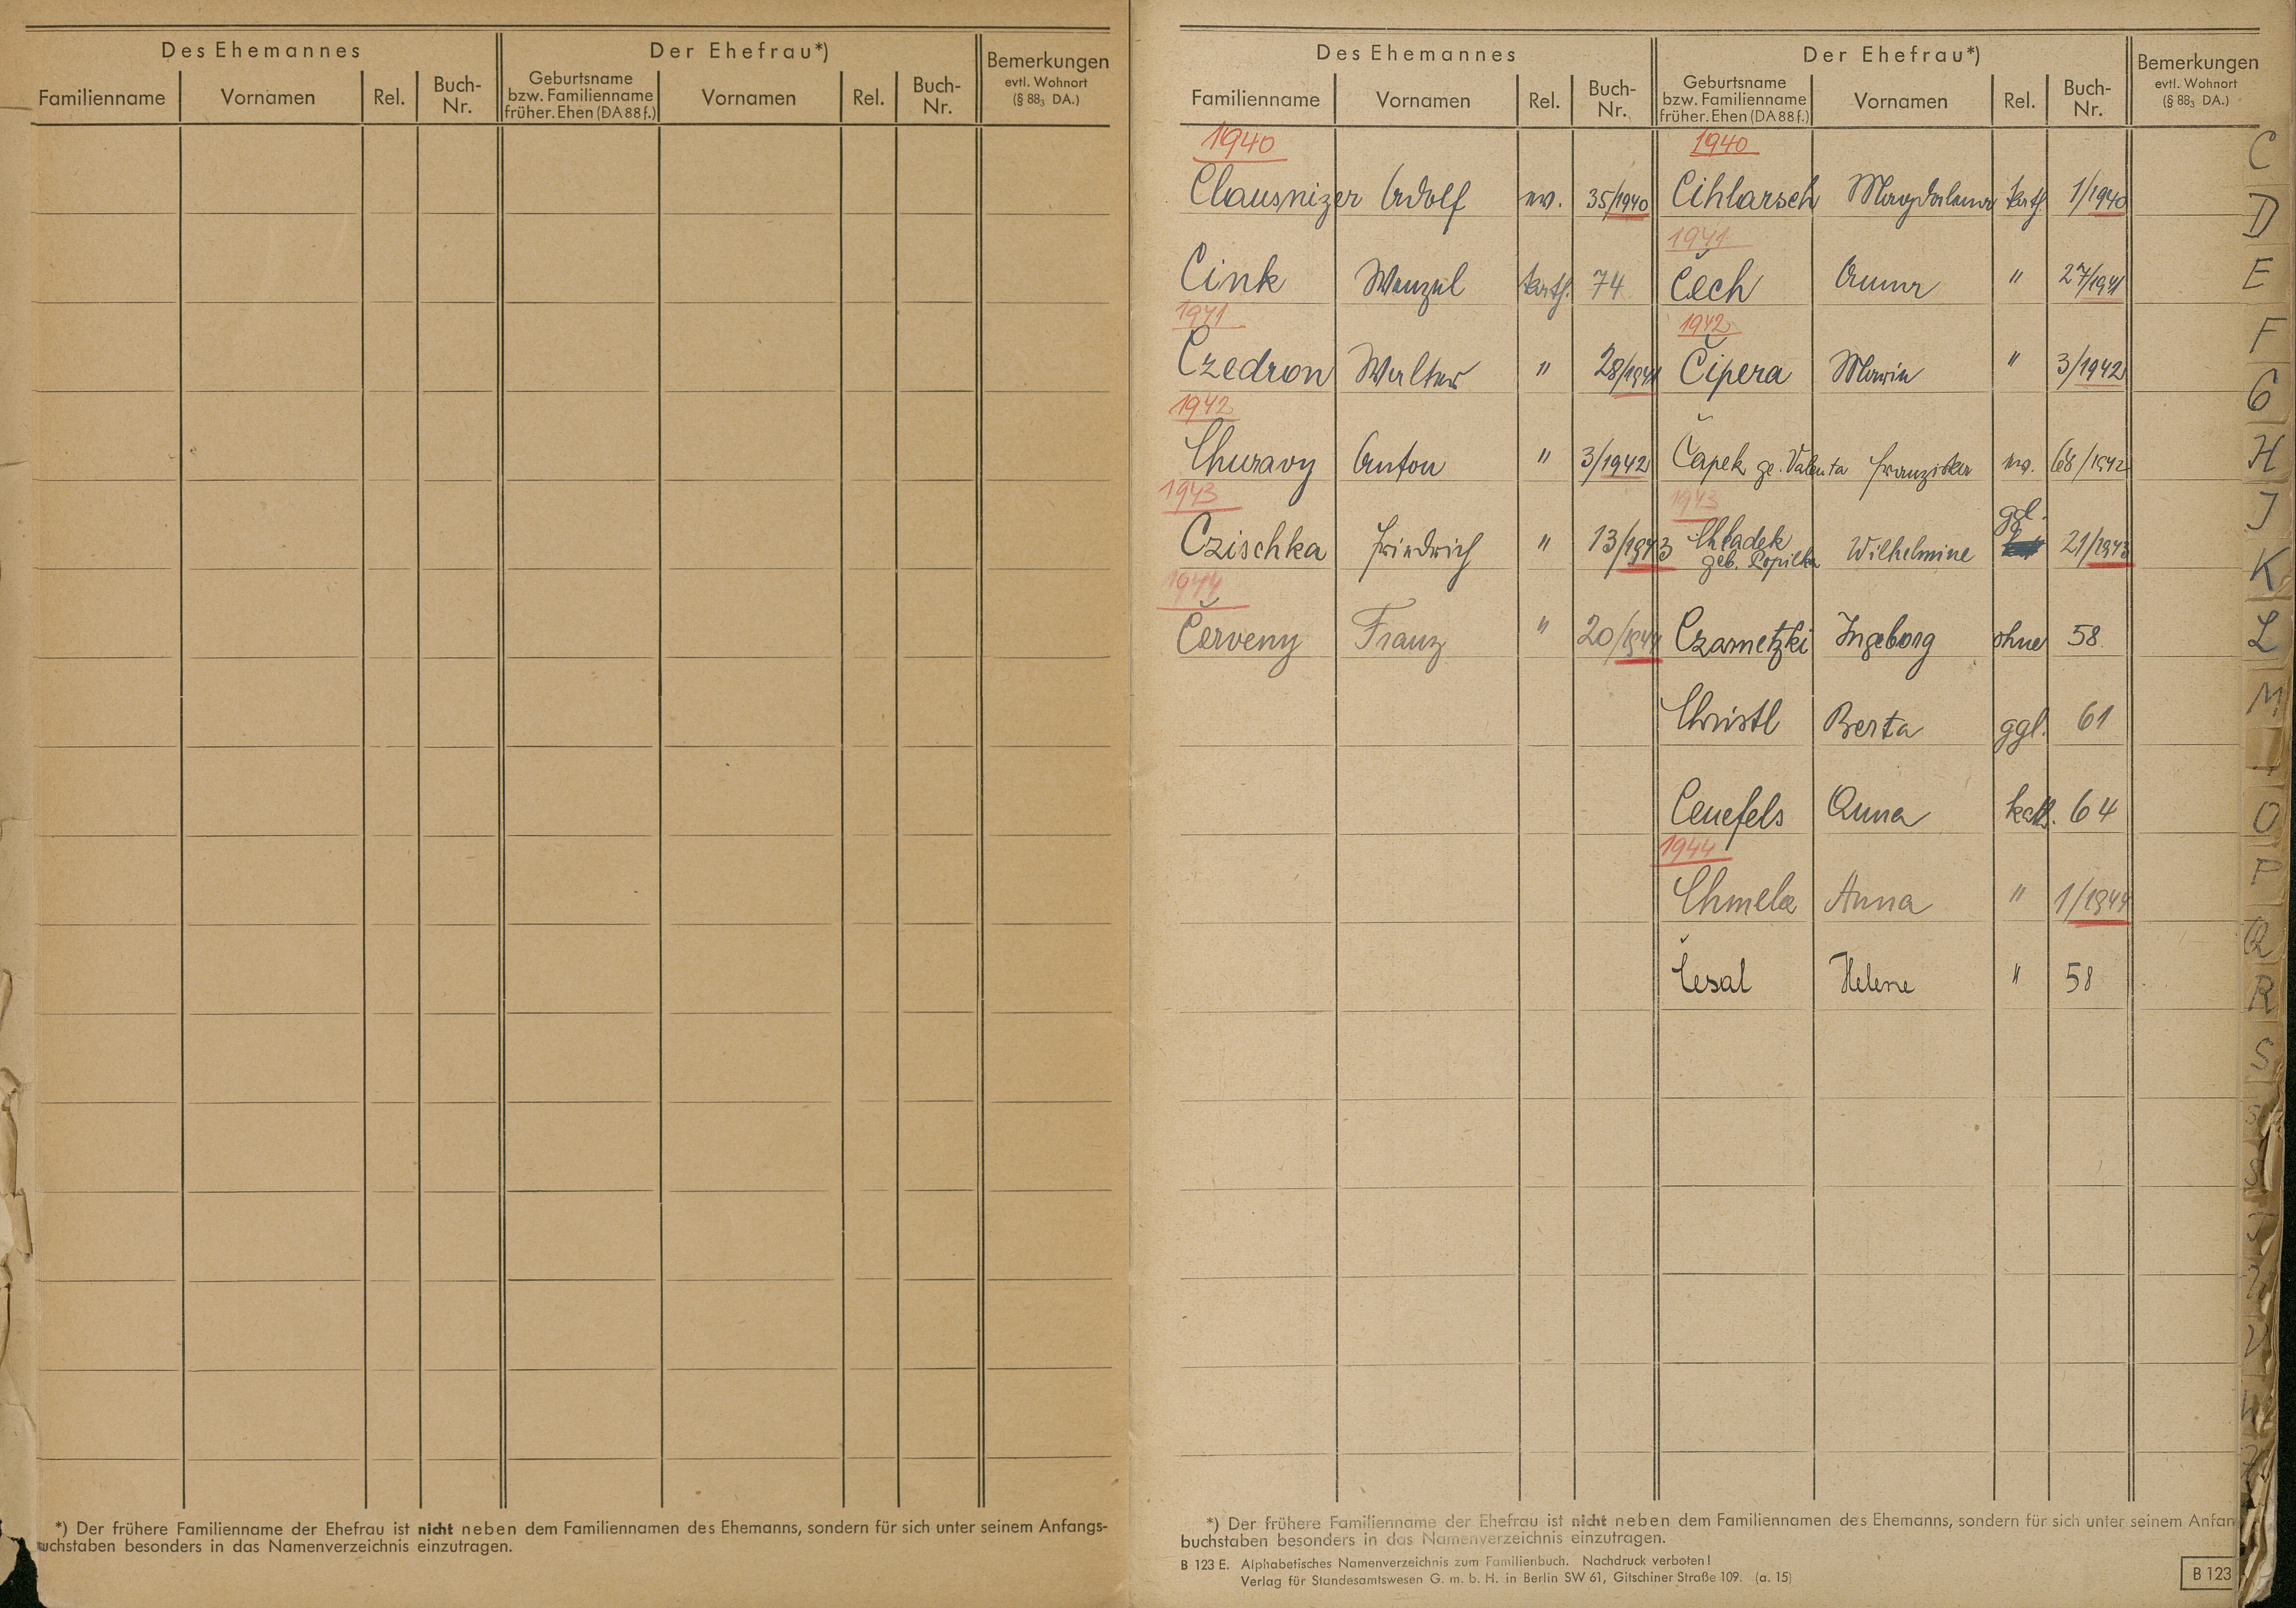 Des Ehemannes Der Ehefrau*) Bemerkungen
evtl. Wohnort
(§ 88₃ DA.)
Familienname Vornamen Rel. Buch-
Nr.
Geburtsname
bzw. Familienname
früher. Ehen (DA 88 f.)
Vornamen Rel. Buch-
Nr.
*) Der frühere Familienname der Ehefrau ist nicht neben dem Familiennamen des Ehemanns, sondern für sich unter seinem Anfangs-
buchstaben besonders in das Namenverzeichnis einzutragen.
Des Ehemannes Der Ehefrau*) Bemerkungen
evtl. Wohnort
(§ 88₃ DA.)
Familienname Vornamen Rel. Buch-
Nr.
Geburtsname
bzw. Familienname
früher. Ehen (DA 88 f.)
Vornamen Rel. Buch-
Nr.
1940 1940
Clausnizer Adolf ev. 35/1940 Cihlarsch Magdalena kath. 1/1940
1941
Cink Wenzel kath. 74 Čech Anna " 27/1941
1941 1942
Czedron Walter " 28/1941 Čipera Maria " 3/1942
1942
Churavy Anton " 3/1942 Čapek ge. Valenta Franziska ev. 68/1942
1943 1943
Czischka Friedrich " 13/1943 Chladek
geb. Popilka Wilhelmine ggl. 21/1943
1944
Červeny Franz " 20/1944 Czarnetzki Ingeborg ohne 58
Christl Berta ggl. 61
Cenefels Anna kath. 64
1944
Chmela Anna " 1/1944
Česal Helene " 58
*) Der frühere Familienname der Ehefrau ist nicht neben dem Familiennamen des Ehemanns, sondern für sich unter seinem Anfan
buchstaben besonders in das Namenverzeichnis einzutragen.
B 123 E. Alphabetisches Namenverzeichnis zum Familienbuch. Nachdruck verboten!
Verlag für Standesamtswesen G. m. b. H. in Berlin SW 61, Gitschiner Straße 109. (a. 15)
B 123
C
D
E
F
G
H
J
K
L
M
O
P
Q
R
S